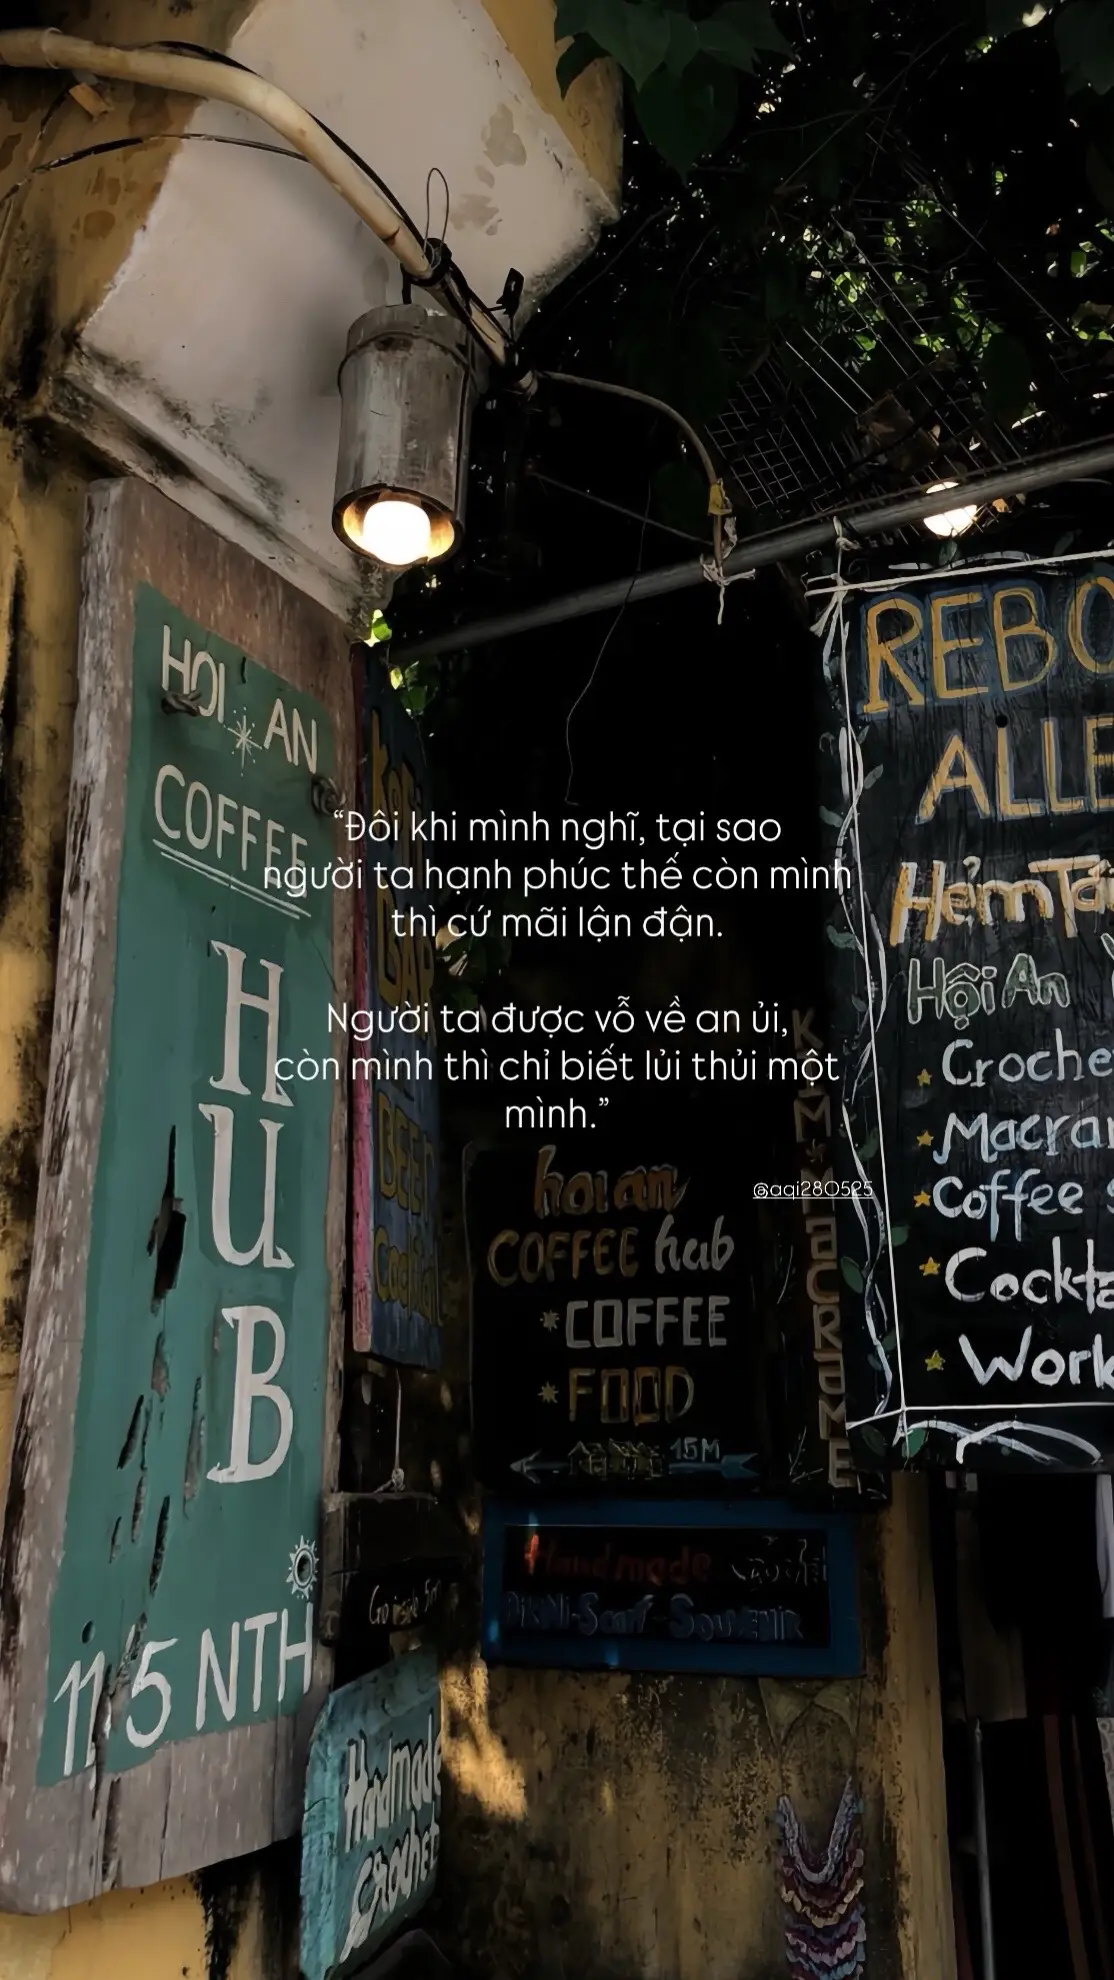 HOI AN
COFFEE
HUB
115 NTH
“Đôi khi mình nghĩ, tại sao
người ta hạnh phúc thế còn mình
thì cứ mãi lận đận.
Người ta được vỗ về an ủi,
còn mình thì chỉ biết lủi thủi một
mình.”
@aqi280525
BAR
BEER
Cocktail
hoi an
COFFEE hub
COFFEE
FOOD
15M
MaCRaME
Handmade
Scarf - SOUVENIR
Go inside
Handmade
CROCHET
REBO
ALLE
Hẻm Tá
Hội An
Croche
Macra
Coffee
Cockta
Work